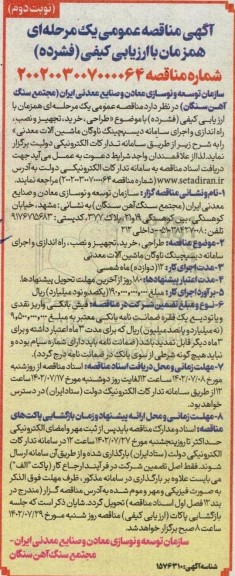 (نوبت دوم)
آگهی مناقصه عمومی یک مرحله‌ای
همزمان با ارزیابی کیفی (فشرده)
شماره مناقصه ۲۰۰۲۰۰۳۰۰۷۰۰۰۰۶۴
سازمان توسعه و نوسازی معادن و صنایع معدنی ایران (مجتمع سنگ
آهن سنگان) در نظر دارد مناقصه عمومی یک مرحله‌ای همزمان با
ارزیابی کیفی (فشرده) با موضوع «طراحی، خرید، تجهیز و نصب،
راه اندازی و اجرای سامانه دیسپچینگ ناوگان ماشین آلات معدنی»
را به شرح زیر از طریق سامانه تدارکات الکترونیکی دولت برگزار
نماید. لذا از علاقمندان واجد شرایط دعوت به عمل می‌آید جهت
دریافت اسناد مناقصه به سامانه تدارکات الکترونیکی دولت به آدرس
www.setadiran.ir (شماره مناقصه ۲۰۰۲۰۰۳۰۰۷۰۰۰۰۶۴) مراجعه نمایند.
۱- نام و نشانی مناقصه گزار: سازمان توسعه و نوسازی معادن و صنایع
معدنی ایران (مجتمع سنگ آهن سنگان) به نشانی: مشهد، خیابان
کوهسنگی، بین کوهسنگی ۱۹ و ۲۱، پلاک ۳۷۷، کدپستی: ۹۱۷۶۷۱۵۶۸۳
تلفن: ۰۵۱-۳۸۴۲۷۰۰۸ داخلی ۲۱۳
۲- موضوع مناقصه: طراحی، خرید، تجهیز و نصب، راه اندازی و اجرای
سامانه دیسپچینگ ناوگان ماشین آلات معدنی
۳- مدت اجرای کار: ۱۲ (دوازده) ماه شمسی
۴- مدت اعتبار پیشنهادها: ۱۸۰ روز از آخرین مهلت تحویل پیشنهادها.
۵- برآورد اجرای کار: مبلغ ۱۹۰,۰۰۰,۰۰۰,۰۰۰ (یکصد و نود میلیارد) ریال
۶- نوع و مبلغ تضمین شرکت در مناقصه: فیش بانکی واریز نقدی
و یا تودیع یک فقره ضمانت نامه بانکی معتبر به مبلغ ۹,۵۰۰,۰۰۰,۰۰۰
(نه میلیارد و پانصد میلیون) ریال که برای مدت ۳ ماه اعتبار داشته و برای
۳ ماه دیگر قابل تمدید باشد (ضمانت نامه باید دارای شماره سپام بوده و
نباید هیچ گونه شرطی از سوی بانک در ضمانت نامه درج گردد).
۷- مهلت زمانی و محل دریافت اسناد مناقصه: اسناد مناقصه از روز شنبه
مورخ ۱۴۰۲/۰۷/۰۸ ساعت ۸ الی غایت روز دوشنبه مورخ ۱۴۰۲/۰۷/۱۷ ساعت
۱۲ از طریق سامانه تدارکات الکترونیک دولت (ستاد ایران) در دسترس
خواهد بود.
۸- مهلت زمانی و محل ارائه پیشنهاد و زمان بازگشایی پاکت‌های
مناقصه: اسناد و مدارک مناقصه باید پس از ثبت مهر و امضای الکترونیکی
حداکثر تا روز پنجشنبه مورخ ۱۴۰۲/۰۷/۲۷ ساعت ۱۲ در سامانه تدارکات
الکترونیکی دولتی (ستاد ایران) بارگذاری شده و از طریق آن سامانه ارسال
شوند. فقط اصل تضمین شرکت در فرآیند ارجاع کار (پاکت "الف")
می بایست علاوه بر بارگذاری در سامانه مذکور، ظرف مهلت فوق الذکر
به صورت فیزیکی و مهر و موم شده به آدرس مناقصه گزار (مندرج در
بند ۱۲ فصل اول اسناد مناقصه) تحویل گردد. شایان ذکر است که جلسه
بازگشایی پاکات (ارزیابی کیفی) مناقصه روز شنبه مورخ ۱۴۰۲/۰۷/۲۹
ساعت ۸ صبح برگزار خواهد شد.
سازمان توسعه و نوسازی معادن و صنایع معدنی ایران -
مجتمع سنگ آهن سنگان
شناسه آگهی: ۱۵۷۶۳۱۰